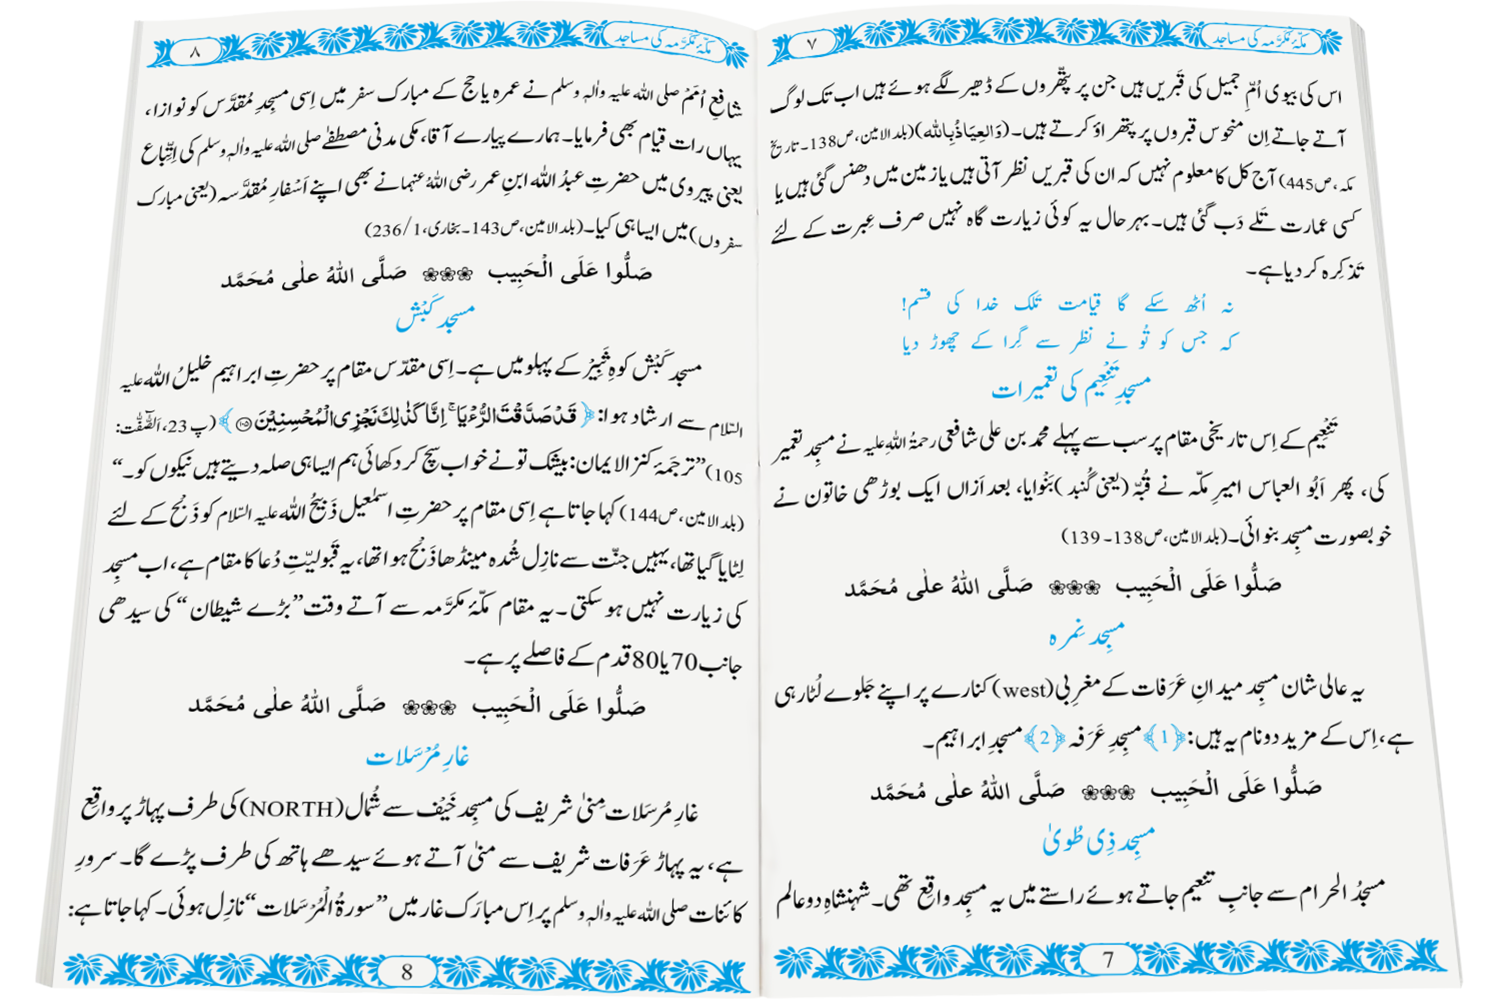 مکّۂ مُکَرَّمہ کی مساجد
۷
اس کی بیوی اُمِّ جمیل کی قَبریں ہیں جن پر پتّھروں کے ڈھیر لگے ہوئے ہیں اب تک لوگ
آتے جاتے اِن منحوس قبروں پر پتھراؤ کرتے ہیں۔ (وَالعِیَاذُبِاللہ)(بلد الامین،ص138۔تاریخ
مکہ،ص445) آج کل کا معلوم نہیں کہ ان کی قبریں نظر آتی ہیں یا زمین میں دھنس گئی ہیں یا
کسی عمارت تَلے دَب گئی ہیں۔ بہر حال یہ کوئی زیارت گاہ نہیں صرف عِبرت کے لئے
تَذکِرہ کر دیا ہے۔
نہ اُٹھ سکے گا قِیامت تَلک خدا کی قسم!
کہ جس کو تُو نے نظر سے گِرا کے چھوڑ دیا
مسجدِ تَنْعِیم کی تعمیرات
تَنْعِیم کے اِس تاریخی مقام پر سب سے پہلے محمد بن علی شافعی رحمۃُ اللہِ علیہ نے مسجد تعمیر
کی، پھر اَبُو العباس امیرِ مکّہ نے قُبّہ (یعنی گُنبد) بَنْوایا، بعد اَزاں ایک بوڑھی خاتون نے
خوبصورت مسجِد بنوائی۔ (بلد الامین،ص138۔139)
صَلُّوا عَلَی الْحَبِیب ❀❀❀ صَلَّی اللہُ علٰی مُحَمَّد
مسجِد نَمِرہ
یہ عالی شان مسجِد میدانِ عَرَفات کے مغرِبی (west) کنارے پر اپنے جَلوے لُٹا رہی
ہے، اِس کے مزید دو نام یہ ہیں: ﴿1﴾ مسجِدِ عَرَفہ ﴿2﴾ مسجدِ ابراہیم۔
صَلُّوا عَلَی الْحَبِیب ❀❀❀ صَلَّی اللہُ علٰی مُحَمَّد
مسجِد ذِی طُویٰ
مسجدُ الحرام سے جانبِ تنعیم جاتے ہوئے راستے میں یہ مسجد واقِع تھی۔ شہنشاہِ دو عالم
7
مکّۂ مُکَرَّمہ کی مساجد
۸
شافِعِ اُمَمْ صلی اللہ علیہ واٰلہٖ وسلم نے عمرہ یا حج کے مبارک سفر میں اِسی مسجِدِ مُقدَّس کو نوازا،
یہاں رات قیام بھی فرمایا۔ ہمارے پیارے آقا، مکی مدنی مصطفےٰ صلی اللہ علیہ واٰلہٖ وسلم کی اِتِّباع
یعنی پیروی میں حضرتِ عبدُ اللہ ابنِ عمر رضی اللہُ عنہما نے بھی اپنے اَسْفارِ مُقدَّسہ (یعنی مبارک
سفروں) میں ایسا ہی کیا۔ (بلد الامین،ص143۔بخاری،1/236)
صَلُّوا عَلَی الْحَبِیب ❀❀❀ صَلَّی اللہُ علٰی مُحَمَّد
مسجد کَبْش
مسجد کَبْش کوہِ ثَبِیْر کے پہلو میں ہے۔ اِسی مقدّس مقام پر حضرتِ ابراہیم خلیلُ اللہ علیہ
السّلام سے ارشاد ہوا: ﴿قَدْ صَدَّقْتَ الرُّءْیَا ۚ اِنَّا كَذٰلِكَ نَجْزِی الْمُحْسِنِیْنَ ۝۱۰۵﴾ (پ 23، الصّٰٓفّٰت:
105) ’’ترجَمَۂ کنز الایمان: بیشک تو نے خواب سچ کر دکھائی ہم ایسا ہی صلہ دیتے ہیں نیکوں کو۔‘‘
(بلد الامین،ص144) کہا جاتا ہے اِسی مقام پر حضرتِ اسمٰعیل ذَبیحُ اللہ علیہ السّلام کو ذَبْح کے لئے
لِٹایا گیا تھا، یہیں جنّت سے نازِل شُدہ مینڈھا ذَبْح ہوا تھا، یہ قَبولیّتِ دُعا کا مقام ہے، اب مسجِد
کی زیارت نہیں ہو سکتی۔ یہ مقام مکّۂ مکرَّمہ سے آتے وقت ’’بڑے شیطان‘‘ کی سیدھی
جانب 70 یا 80 قدم کے فاصلے پر ہے۔
صَلُّوا عَلَی الْحَبِیب ❀❀❀ صَلَّی اللہُ علٰی مُحَمَّد
غارِ مُرْسَلات
غارِ مُرسَلات مِنیٰ شریف کی مسجِد خَیْف سے شُمال (NORTH) کی طرف پہاڑ پر واقِع
ہے، یہ پہاڑ عَرَفات شریف سے منیٰ آتے ہوئے سیدھے ہاتھ کی طرف پڑے گا۔ سرورِ
کائنات صلی اللہ علیہ واٰلہٖ وسلم پر اِس مبارَک غار میں ’’سورۃُ الْمُرْسَلات‘‘ نازِل ہوئی۔ کہا جاتا ہے:
8